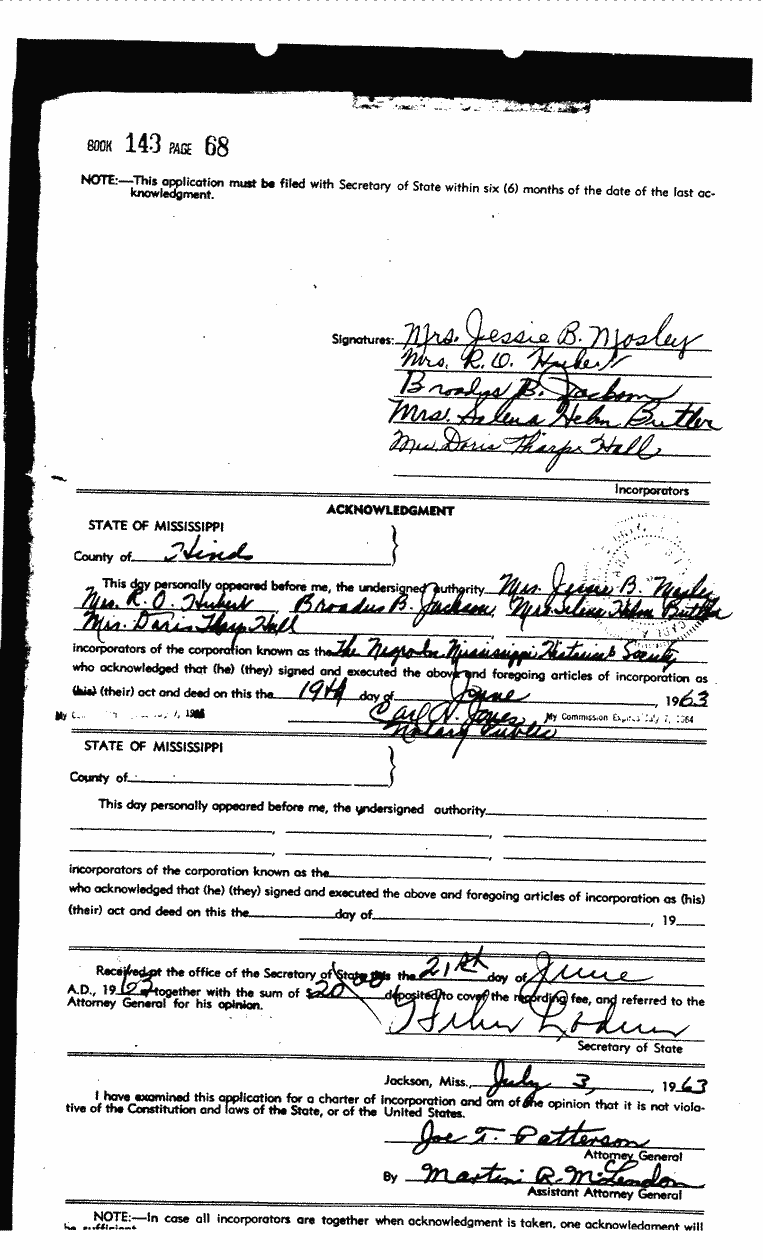 BOOK 143 PAGE 68
NOTE:—This application must be filed with Secretary of State within six (6) months of the date of the last ac-
knowledgment.
Signatures: Mrs. Jessie B. Mosley
Mrs. R. O. Hubert
Broadus B. Jackson
Mrs. Selena Helm Butler
Mrs. Doris Tharpe Hall
Incorporators
ACKNOWLEDGMENT
STATE OF MISSISSIPPI
County of Hinds
This day personally appeared before me, the undersigned authority Mrs. Jessie B. Mosley
Mrs. R. O. Hubert Broadus B. Jackson, Mrs. Selena Helm Butler
Mrs. Doris Tharp Hall
incorporators of the corporation known as the The Negro In Mississippi Historical Society
who acknowledged that (he) (they) signed and executed the above and foregoing articles of incorporation as
(his) (their) act and deed on this the 19th day of June, 1963
Carl N. Jones My Commission Expires July 7, 1964
Notary Public
STATE OF MISSISSIPPI
County of
This day personally appeared before me, the undersigned authority
, ,
, ,
incorporators of the corporation known as the
who acknowledged that (he) (they) signed and executed the above and foregoing articles of incorporation as (his)
(their) act and deed on this the day of , 19
Received at the office of the Secretary of State this the 21st day of June
A.D., 1963 together with the sum of $20.00 deposited to cover the recording fee, and referred to the
Attorney General for his opinion.
Heber Ladner
Secretary of State
Jackson, Miss., July 3, 1963
I have examined this application for a charter of incorporation and am of the opinion that it is not viola-
tive of the Constitution and laws of the State, or of the United States.
Joe T. Patterson
Attorney General
By Martin R. McLendon
Assistant Attorney General
NOTE:—In case all incorporators are together when acknowledgment is taken, one acknowledgment will
be sufficient.